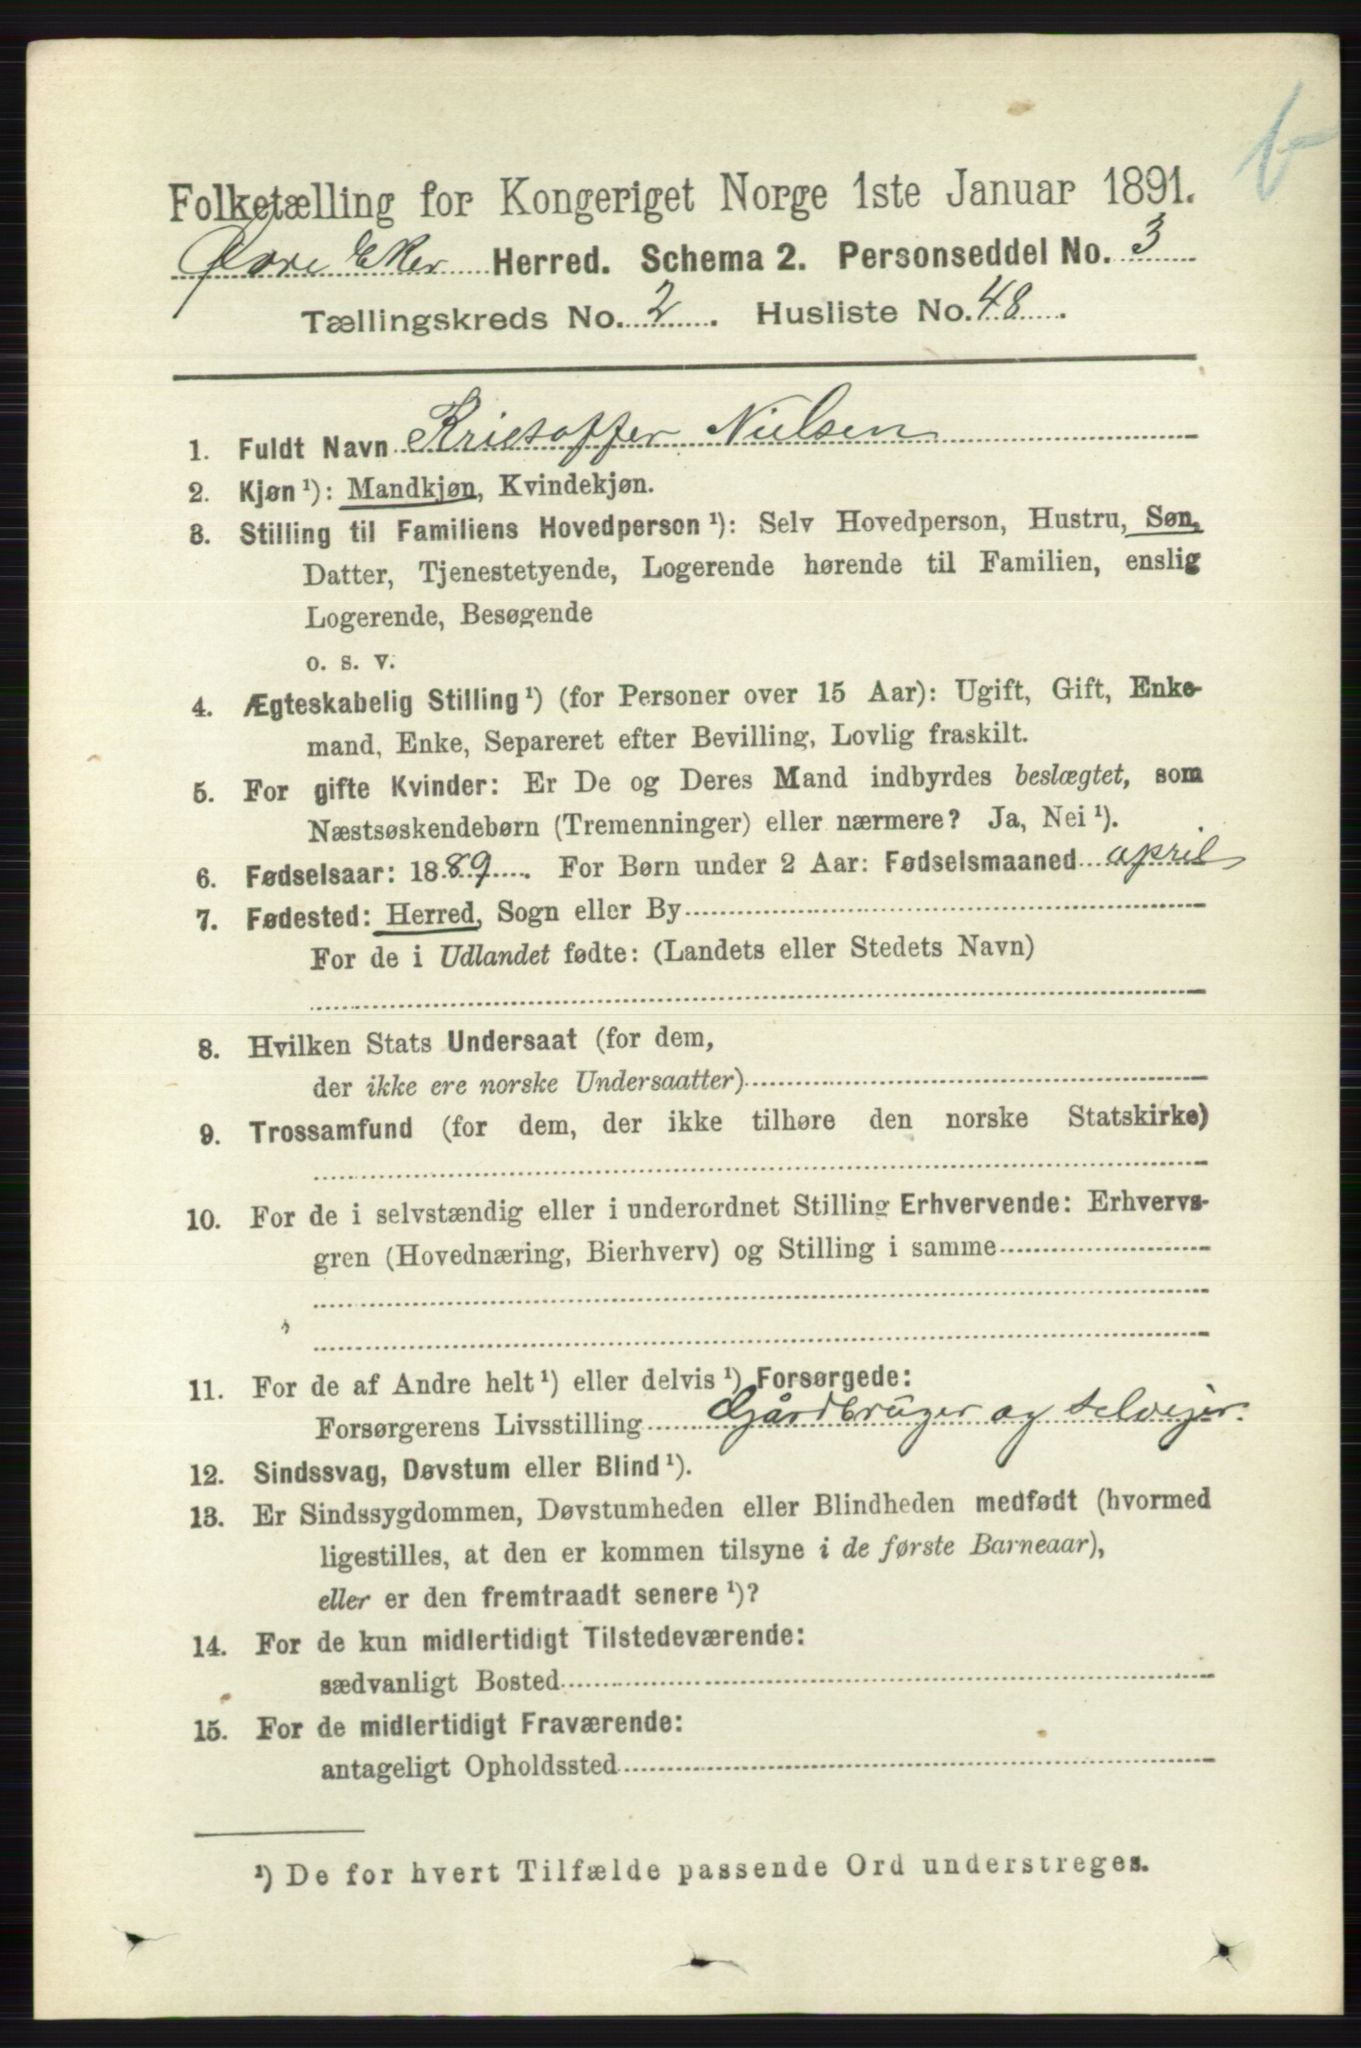 b
Folketælling for Kongeriget Norge 1ste Januar 1891.
Øvre Eker Herred. Schema 2. Personseddel No. 3
Tællingskreds No. 2. Husliste No. 48.
1. Fuldt Navn Kristoffer Nielsen
2. Kjøn ¹): Mandkjøn, Kvindekjøn.
3. Stilling til Familiens Hovedperson ¹): Selv Hovedperson, Hustru, Søn,
Datter, Tjenestetyende, Logerende hørende til Familien, enslig
Logerende, Besøgende
o. s. v.
4. Ægteskabelig Stilling ¹) (for Personer over 15 Aar): Ugift, Gift, Enke-
mand, Enke, Separeret efter Bevilling, Lovlig fraskilt.
5. For gifte Kvinder: Er De og Deres Mand indbyrdes beslægtet, som
Næstsøskendebørn (Tremenninger) eller nærmere? Ja, Nei ¹).
6. Fødselsaar: 1889. For Børn under 2 Aar: Fødselsmaaned april
7. Fødested: Herred, Sogn eller By
For de i Udlandet fødte: (Landets eller Stedets Navn)
8. Hvilken Stats Undersaat (for dem,
der ikke ere norske Undersaatter)
9. Trossamfund (for dem, der ikke tilhøre den norske Statskirke)
10. For de i selvstændig eller i underordnet Stilling Erhvervende: Erhvervs-
gren (Hovednæring, Bierhverv) og Stilling i samme
11. For de af Andre helt ¹) eller delvis ¹) Forsørgede:
Forsørgerens Livsstilling Gårdbruger og selvejer.
12. Sindssvag, Døvstum eller Blind ¹).
13. Er Sindssygdommen, Døvstumheden eller Blindheden medfødt (hvormed
ligestilles, at den er kommen tilsyne i de første Barneaar),
eller er den fremtraadt senere ¹)?
14. For de kun midlertidigt Tilstedeværende:
sædvanligt Bosted
15. For de midlertidigt Fraværende:
antageligt Opholdssted
¹) De for hvert Tilfælde passende Ord understreges.